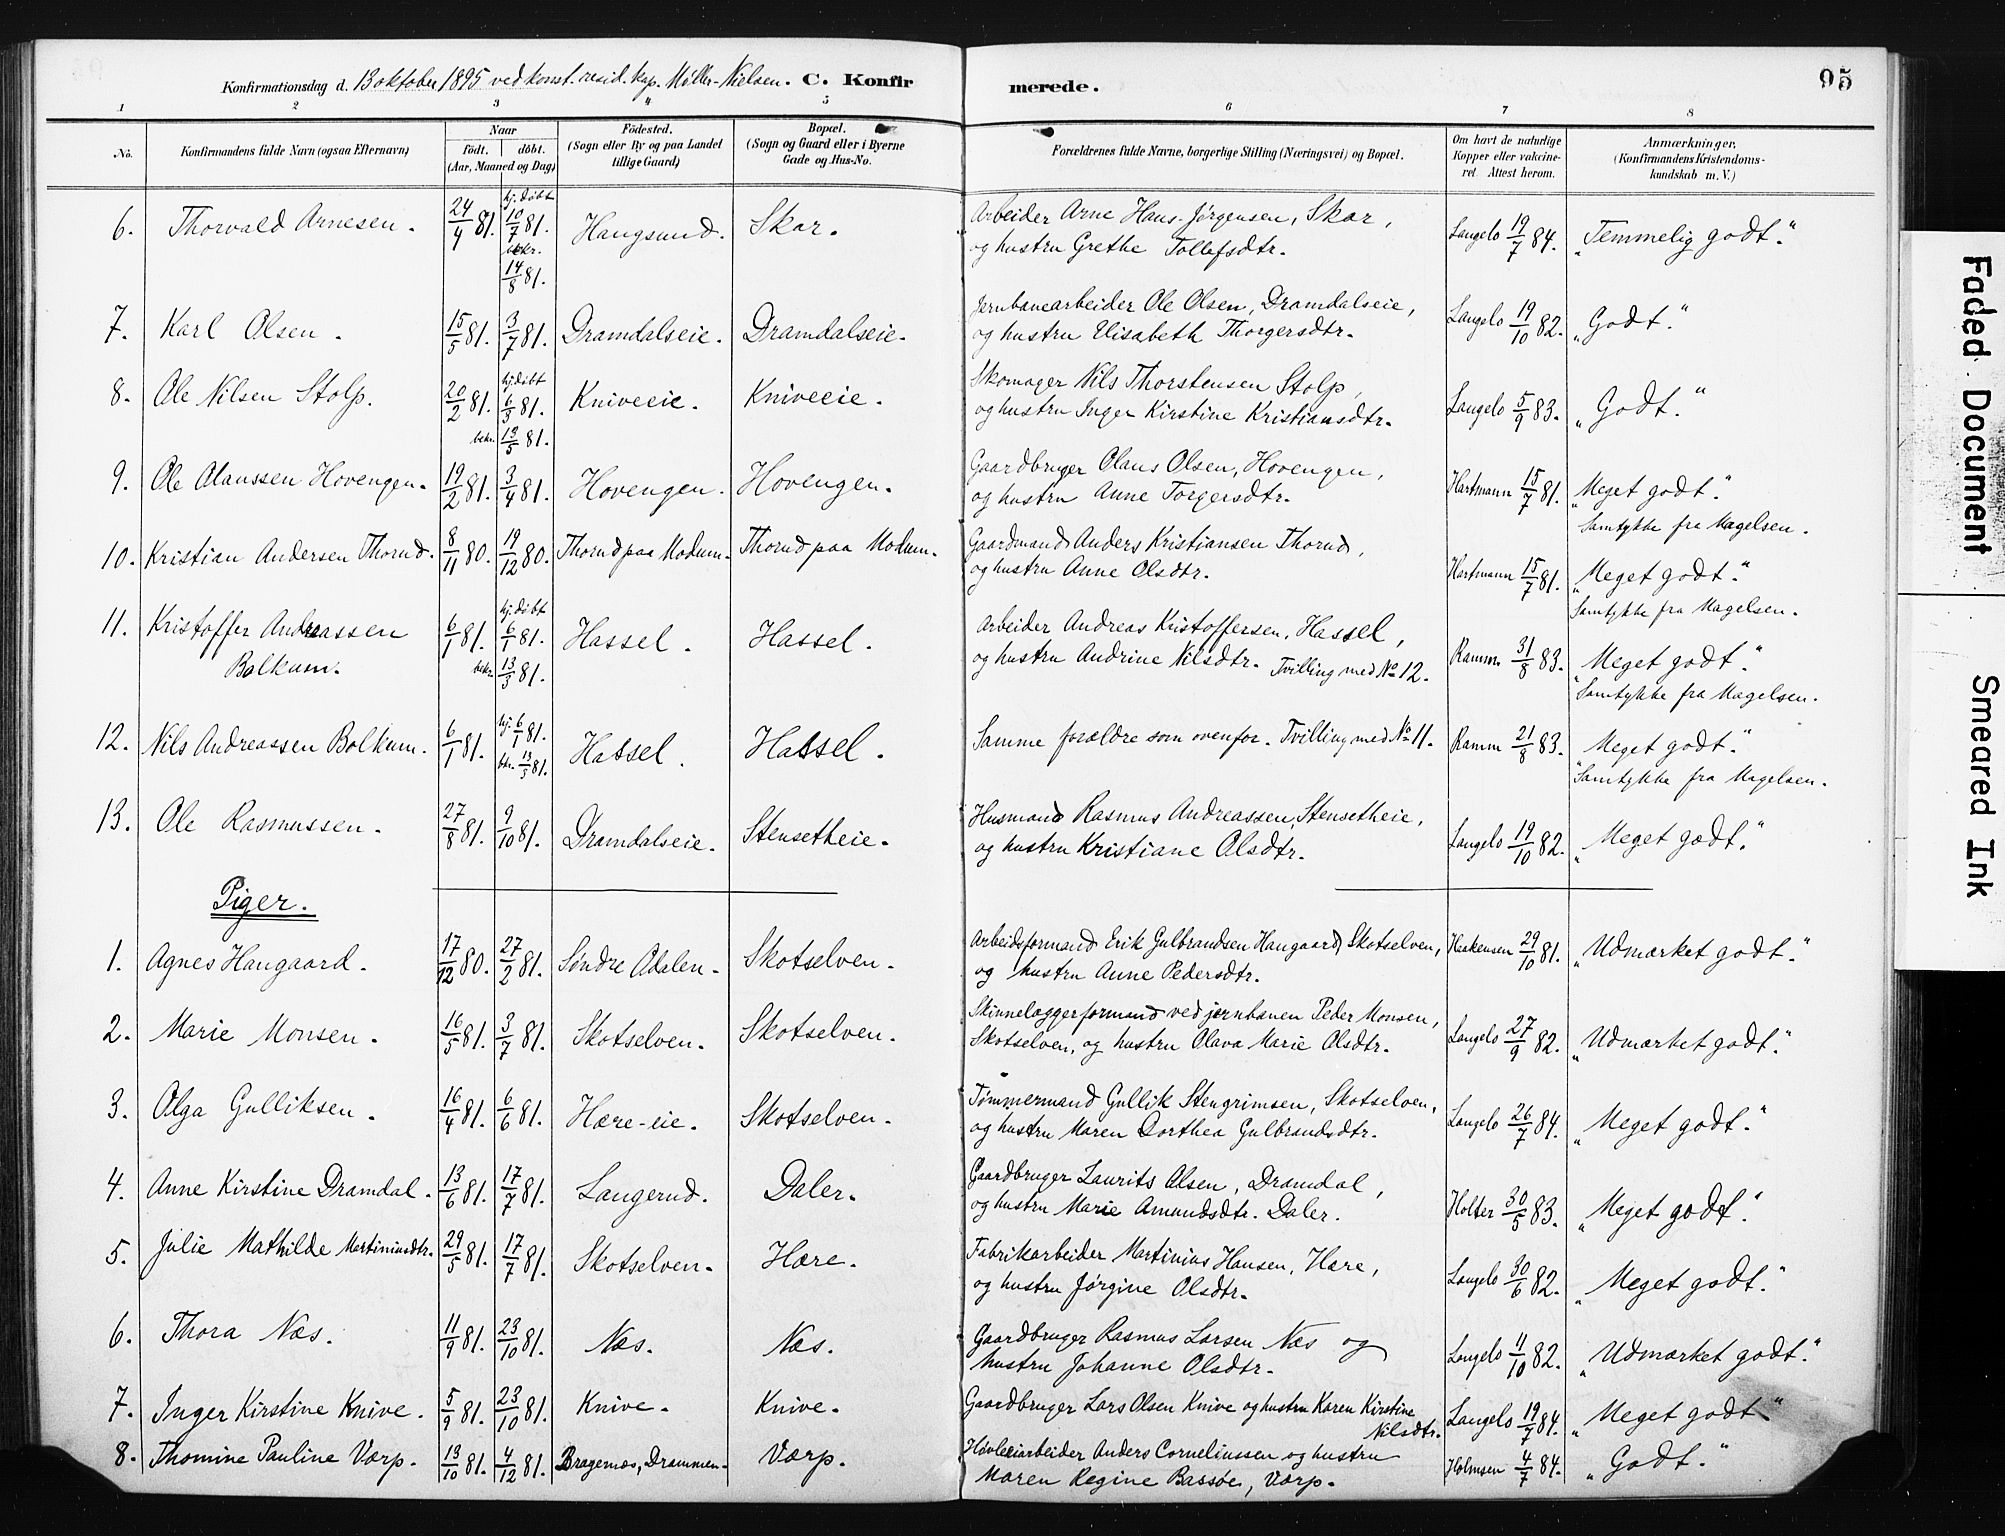 Konfirmationsdag d. 13 oktober 1895 ved konst. resid. kap. Møller-Nielsen. C. Konfirmerede. 95
1 2 3 4 5 6 7 8
No. Konfirmandens fulde Navn (ogsaa Efternavn) Naar født. døbt. (Aar, Maaned og Dag) Fødested. (Sogn eller By og paa Landet tillige Gaard) Bopæl. (Sogn og Gaard eller i Byerne Gade og Hus-No. Forældrenes fulde Navne, borgerlige Stilling (Næringsvei) og Bopæl. Om havt de naturlige Kopper eller vakcineret. Attest herom. Anmærkninger. (Konfirmandens Kristendomskundskab m. V.)
6. Thorvald Arnesen. 24/4 81. hj. døbt 10/7 81. bekr. 14/8 81. Haugsund. Skar. Arbeider Arne Hans-Jørgensen, Skar, og hustru Grethe Tollefsdtr. Langelo 19/7 84. "Temmelig godt."
7. Karl Olsen. 15/5 81. 3/7 81. Dramdalseie. Dramdalseie. Jernbanearbeider Ole Olsen, Dramdalseie, og hustru Elisabeth Thorgersdtr. Langelo 19/10 82. "Godt."
8. Ole Nilsen Stolp. 20/2 81. hj. døbt 6/3 81. bekr. 13/5 81. Kniveeie. Kniveeie. Skomager Nils Thorstensen Stolp, og hustru Inger Kirstine Kristiansdtr. Langelo 5/9 83. "Godt."
9. Ole Olaussen Hovengen. 19/2 81. 3/4 81. Hovengen. Hovengen. Gaardbruger Olaus Olsen, Hovengen, og hustru Anne Torgersdtr. Hartmann 15/7 81. "Meget godt." Samtykke fra Magelsen.
10. Kristian Andersen Thorud. 8/11 80. 19/12 80. Thorud paa Modum. Thorud paa Modum. Gaardmand Anders Kristiansen Thorud, og hustru Anne Olsdtr. Hartmann 15/7 81. "Meget godt." Samtykke fra Magelsen.
11. Kristoffer Andreassen Bolkum. 6/1 81. hj. døbt 6/1 81. bekr. 13/3 81. Hassel. Hassel. Arbeider Andreas Kristoffersen, Hassel, og hustru Andrine Nilsdtr. Tvilling med No 12. Ramm 31/8 83. "Meget godt." Samtykke fra Magelsen.
12. Nils Andreassen Bolkum. 6/1 81. hj. 6/1 81. bekr. 13/3 81. Hassel. Hassel. Samme forældre som ovenfor. Tvilling med No 11. Ramm 21/8 83. "Meget godt." Samtykke fra Magelsen.
13. Ole Rasmussen. 27/8 81. 9/10 81. Dramdalseie. Stensetheie. Husmand Rasmus Andreassen, Stensetheie, og hustru Kristiane Olsdtr. Langelo 19/10 82. "Meget godt."
Piger.
1. Agnes Haugaard. 17/12 80. 27/2 81. Søndre Adalen. Skotselven. Arbeidsformand Erik Gulbrandsen Haugaard, Skotselven, og hustru Anne Pedersdtr. Haakensen 29/10 81. "Udmærket godt."
2. Marie Monsen. 16/5 81. 3/7 81. Skotselven. Skotselven. Skinnelæggerformand ved jernbanen Peder Monsen, Skotselven, og hustru Olava Marie Olsdtr. Langelo 27/9 82. "Udmærket godt."
3. Olga Gulliksen. 16/4 81. 6/6 81. Hære-eie. Skotselven. Tømmermand Gullik Stengrimsen, Skotselven, og hustru Maren Dorthea Gulbrandsdtr. Langelo 26/7 84. "Meget godt."
4. Anne Kirstine Dramdal. 13/6 81. 17/7 81. Langerud. Daler. Gaardbruger Laurits Olsen, Dramdal, og hustru Marie Amundsdtr. Daler. Holter 30/5 83. "Meget godt."
5. Julie Mathilde Martiniusdtr. 29/5 81. 17/7 81. Skotselven. Hære. Fabrikarbeider Martinius Hansen, Hære, og hustru Jørgine Olsdtr. Langelo 30/6 82. "Meget godt."
6. Thora Næs. 11/9 81. 23/10 81. Næs. Næs. Gaardbruger Rasmus Larsen Næs og hustru Johanne Olsdtr. Langelo 11/10 82. "Udmærket godt."
7. Inger Kirstine Knive. 5/9 81. 23/10 81. Knive. Knive. Gaardbruger Lars Olsen Knive og hustru Karen Kirstine Nilsdtr. Langelo 19/7 84. "Meget godt"
8. Thomine Pauline Varp. 13/10 81. 4/12 81. Bragernæs, Drammen. Varp. Høvleriarbeider Anders Corneliussen og hustru Maren Regine Bassøe, Varp. Holmsen 4/7 84. "Godt."
Faded Document
Smeared Ink